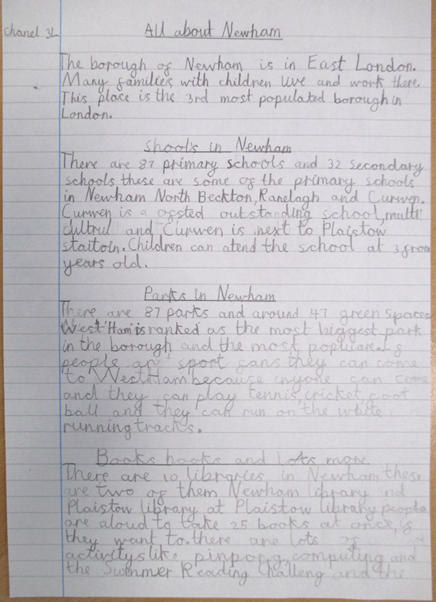 chanel 3L
All about Newham
The borough of Newham is in East London.
Many families with children live and work there.
This place is the 3rd most populated borough in
London.
Shools in Newham
There are 87 primary schools and 32 secondary
schools these are some of the primary schools
in Newham North Beckton, Ranelagh and Curwen.
Curwen is a ofsted outstanding school, multi
cultrul and Curwen is next to Plaistow
staitoin. Children can atend the school at 3 from
years old.
Parks in Newham
There are 87 parks and around 47 green spaces
West Ham is ranked as the most biggest park
in the borough and the most
people are sport fans they can come
to West Ham because anyone can come
and they can play tennis, cricket, foot
ball and they can run on the white
running tracks.
Books books and lots more
There are 10 libraries in Newham these
are two of them Newham library and
Plaistow library at Plaistow library people
are aloud to take 25 books at once if
they want to. there are lots of
activitys like pinpong, computing and
the Summer Reading Challeng and the